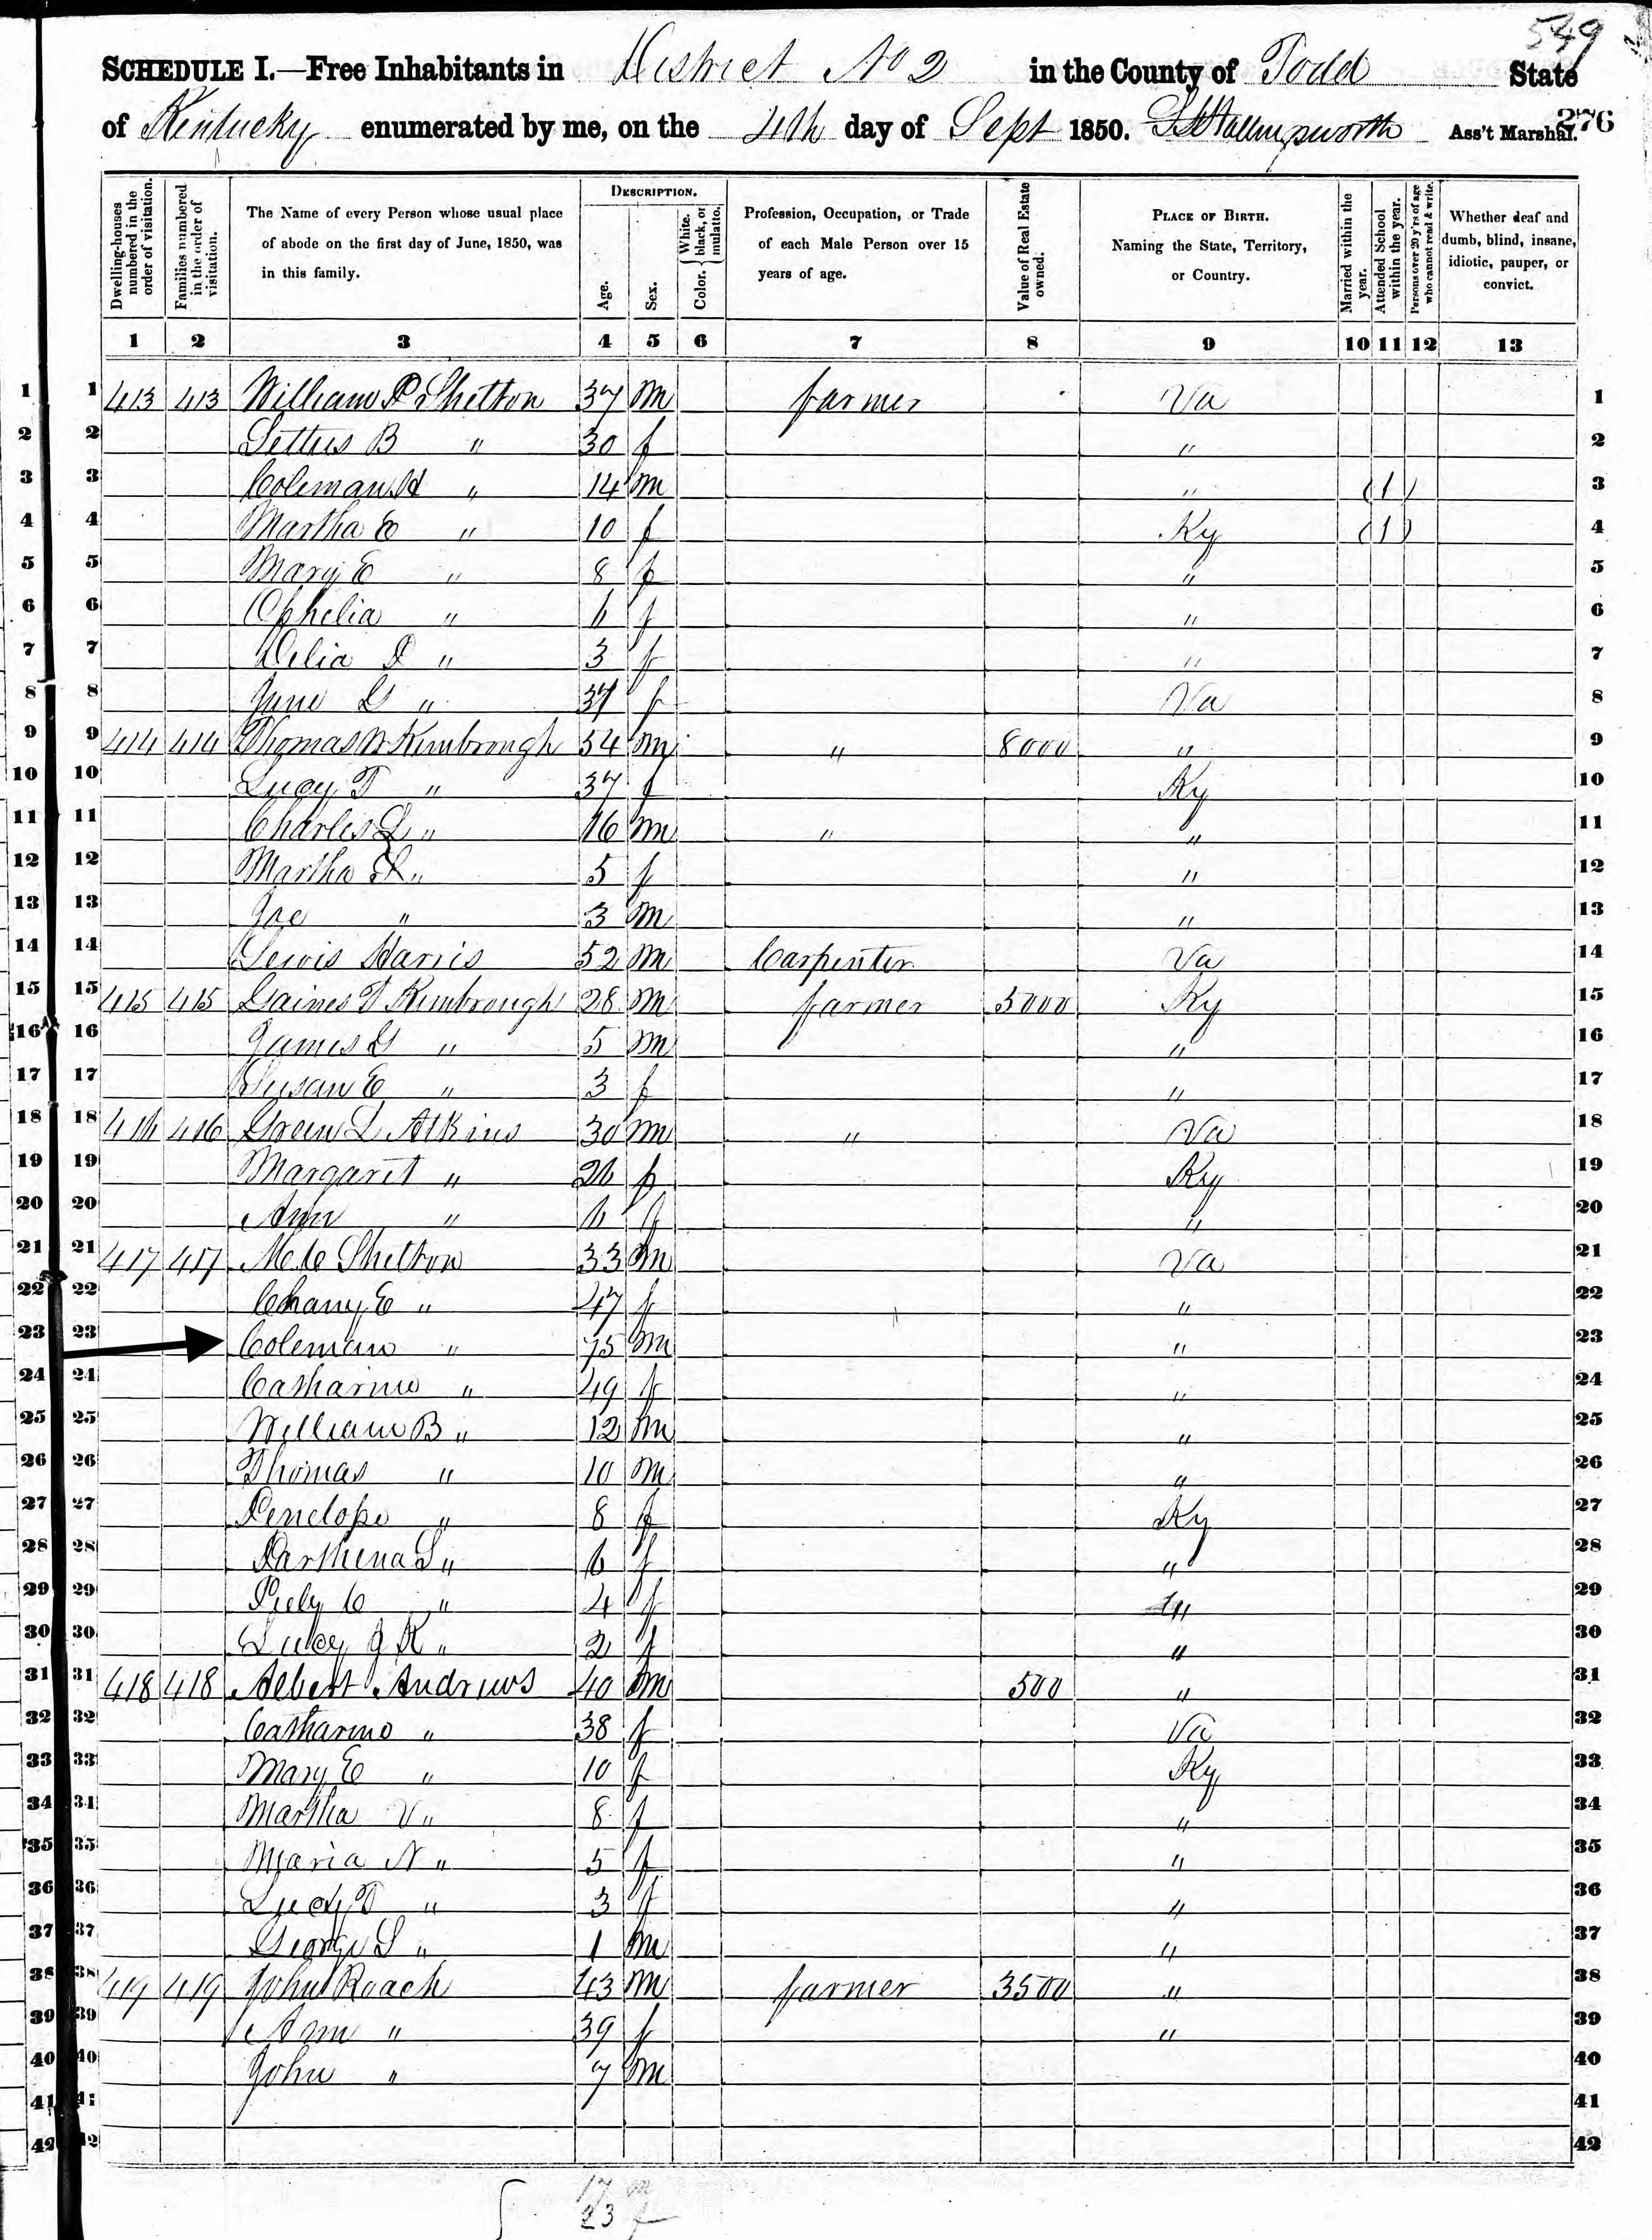 549
SCHEDULE I.—Free Inhabitants in District No 2 in the County of Todd State
of Kentucky enumerated by me, on the 4th day of Sept 1850. Ass't Marshal. 276
Dwelling-houses numbered in the order of visitation.
Families numbered in the order of visitation.
The Name of every Person whose usual place of abode on the first day of June, 1850, was in this family.
DESCRIPTION.
Age.
Sex.
Color. { White, black, or mulatto.
Profession, Occupation, or Trade of each Male Person over 15 years of age.
Value of Real Estate owned.
PLACE OF BIRTH. Naming the State, Territory, or Country.
Married within the year.
Attended School within the year.
Persons over 20 y'rs of age who cannot read & write.
Whether deaf and dumb, blind, insane, idiotic, pauper, or convict.
1 2 3 4 5 6 7 8 9 10 11 12 13
1 1 413 413 William P Shelton 37 m farmer Va 1
2 2 B " 30 f " 2
3 3 Coleman H " 14 m " (1) 3
4 4 Martha E " 10 f Ky (1) 4
5 5 Mary E " 8 f " 5
6 6 Ophelia " 6 f " 6
7 7 Delia P " 3 f " 7
8 8 Jane G " 37 f Va 8
9 9 414 414 Thomas W Kimbrough 54 m " 8000 " 9
10 10 Lucy T " 37 f Ky 10
11 11 Charles L " 16 m " " 11
12 12 Martha " 5 f " 12
13 13 Joe " 3 m " 13
14 14 Lewis Harris 52 m Carpenter Va 14
15 15 415 415 Gaines T Kimbrough 28 m farmer 5000 Ky 15
16 16 James G " 5 m " 16
17 17 Susan E " 3 f " 17
18 18 416 416 Green L Atkins 30 m " Va 18
19 19 Margaret " 26 f Ky 19
20 20 Ann " 6 f " 20
21 21 417 417 M C Shelton 33 m Va 21
22 22 E " 47 f " 22
23 23 Coleman " 75 m " 23
24 24 Catharine " 49 f " 24
25 25 William B " 12 m " 25
26 26 Thomas " 10 m " 26
27 27 Penelope " 8 f Ky 27
28 28 Parthena S " 6 f " 28
29 29 C " 4 f " 29
30 30 Lucy J K " 2 f " 30
31 31 418 418 Albert Andrews 40 m 500 " 31
32 32 Catharine " 38 f Va 32
33 33 Mary E " 10 f Ky 33
34 34 Martha V " 8 f " 34
35 35 Maria N " 5 f " 35
36 36 Lucy T " 3 f " 36
37 37 George S " 1 m " 37
38 38 419 419 John Roach 43 m farmer 3500 " 38
39 39 Ann " 39 f " 39
40 40 John " 7 m 40
41 41 41
42 42 42
17 m
23 f